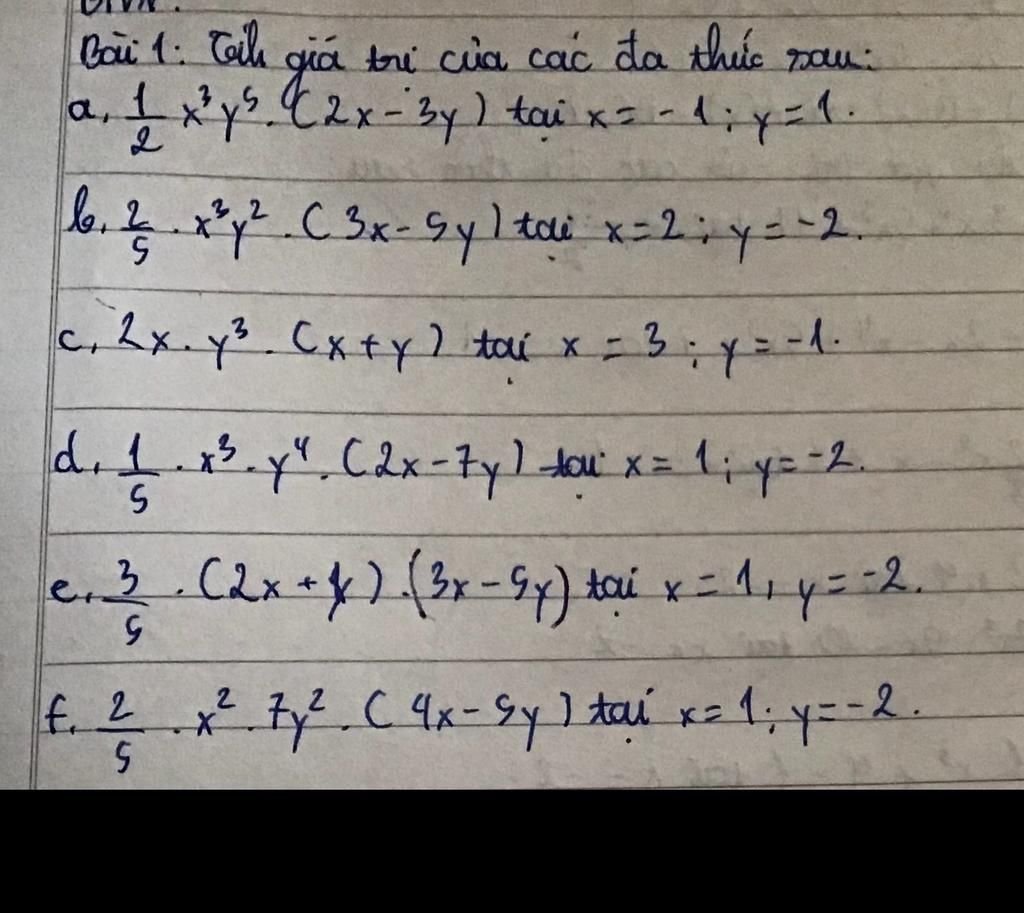 Bài 1: Tính giá trị của các đa thức sau:
a, 1/2 x³y⁵. (2x - 3y) tại x = -1; y = 1.
b, 2/5 . x³y² . (3x - 5y) tại x = 2; y = -2.
c, 2x . y³ . (x + y) tại x = 3; y = -1.
d, 1/5 . x³ . y⁴ . (2x - 7y) tại x = 1; y = -2.
e, 3/5 . (2x + y) . (3x - 5y) tại x = 1, y = -2.
f, 2/5 . x² . 7y² . (4x - 5y) tại x = 1; y = -2.